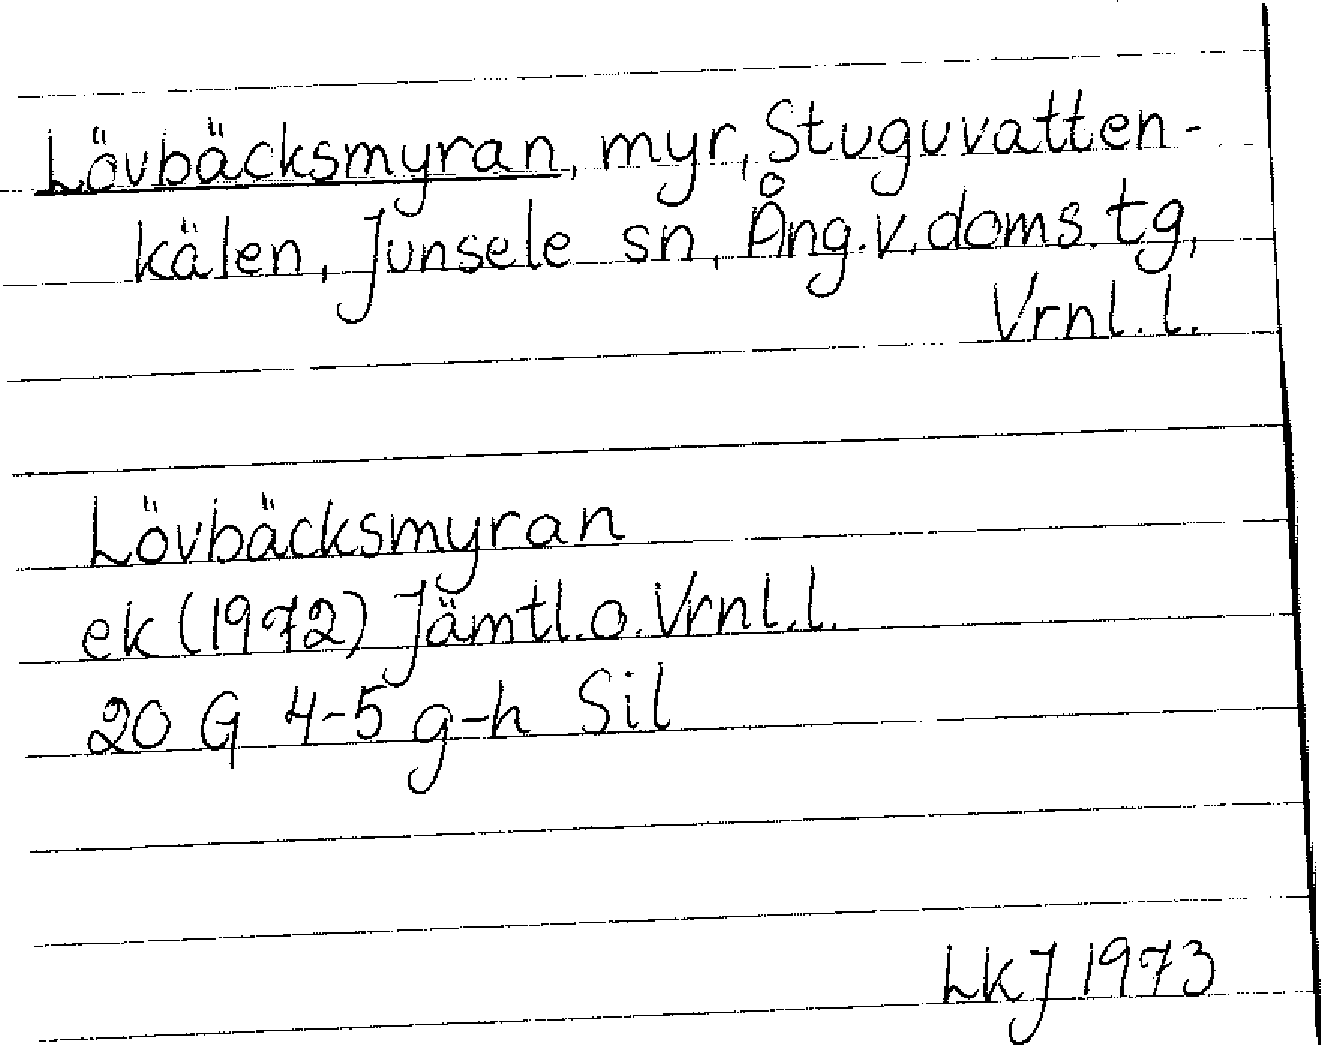 Lövbäcksmyran, myr, Stuguvatten-
kälen, Junsele sn, Ång.v.doms.tg,
Vrnl.l.
Lövbäcksmyran
ek (1972) Jämtl.o.Vrnl.l.
20 G 4-5 g-h Sil
LKJ 1973